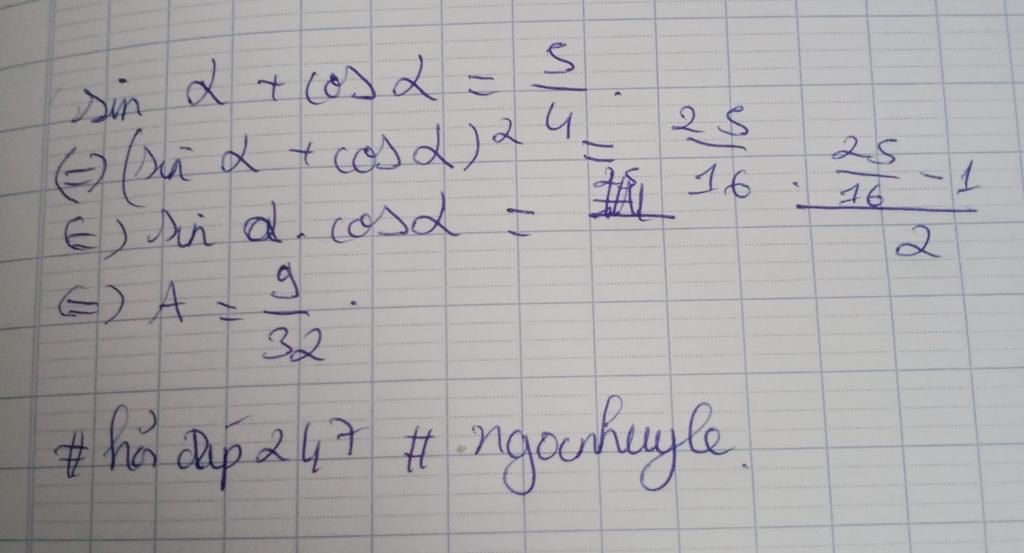 sin α + cos α = 5/4.
(=) (sin α + cos α)² = 25/16.
(=) sin α. cos α = (25/16 - 1)/2
(=) A = 9/32.
# hỏi đáp 247 # ngocnhuyle.